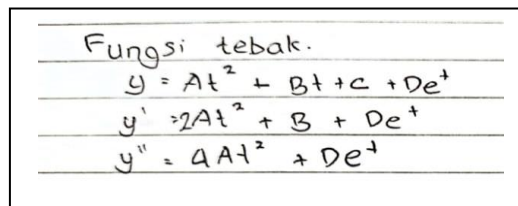 Fungsi tebak.
y = At² + Bt + C + De^t
y' = 2At² + B + De^t
y" = 4At² + De^t